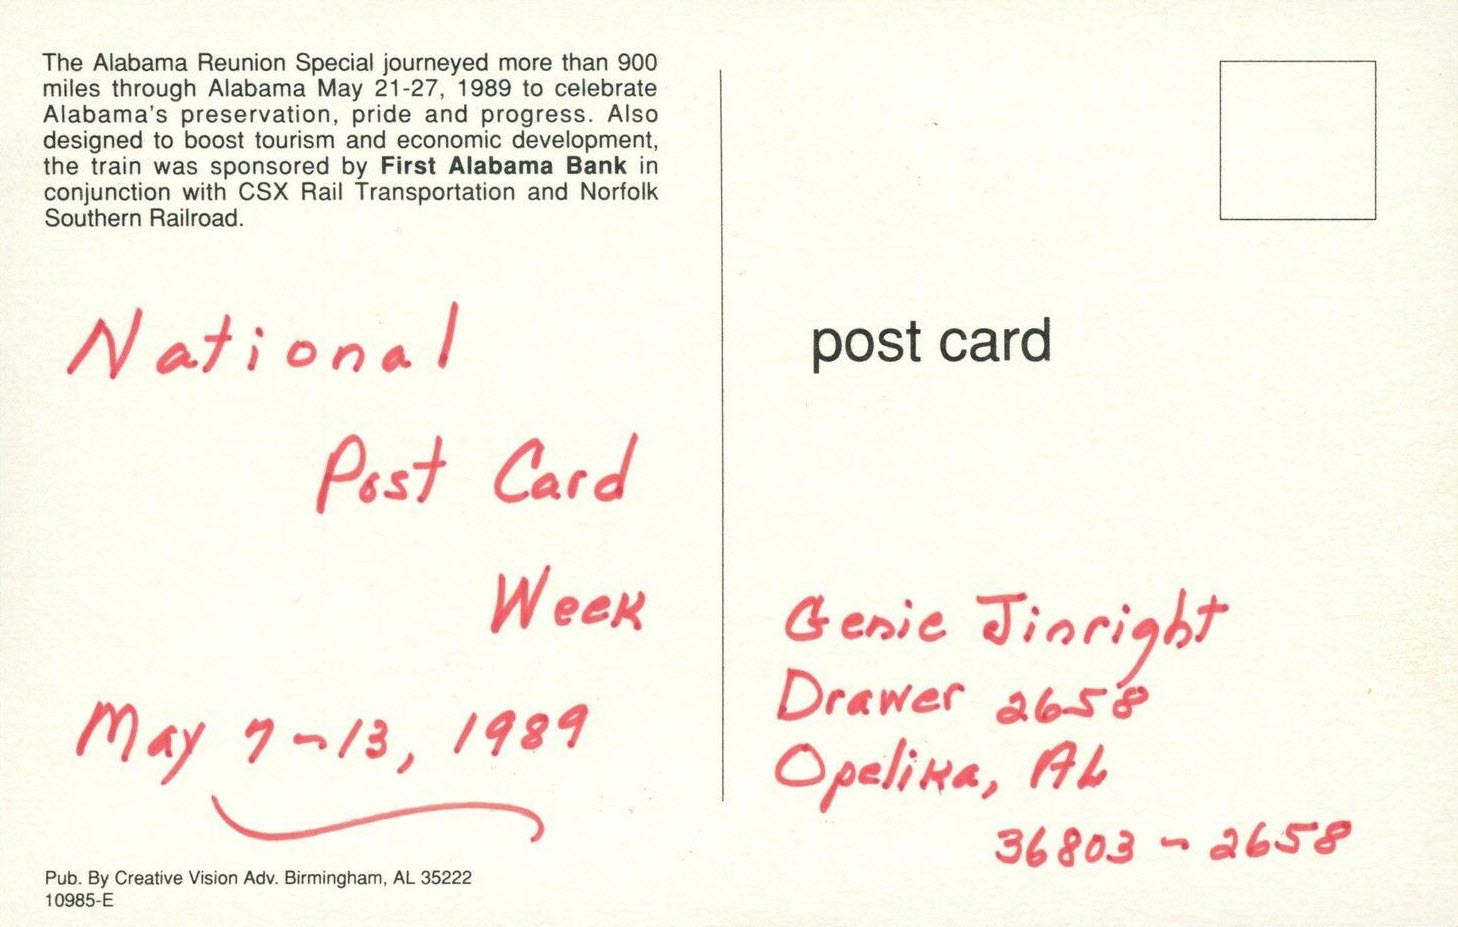 The Alabama Reunion Special journeyed more than 900
miles through Alabama May 21-27, 1989 to celebrate
Alabama's preservation, pride and progress. Also
designed to boost tourism and economic development,
the train was sponsored by First Alabama Bank in
conjunction with CSX Rail Transportation and Norfolk
Southern Railroad.
National
Post Card
Week
May 7-13, 1989
Pub. By Creative Vision Adv. Birmingham, AL 35222
10985-E
post card
Genie Jinright
Drawer 2658
Opelika, AL
36803-2658